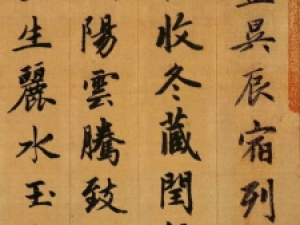 昃辰宿列
收冬藏閏
陽雲騰致
生麗水玉